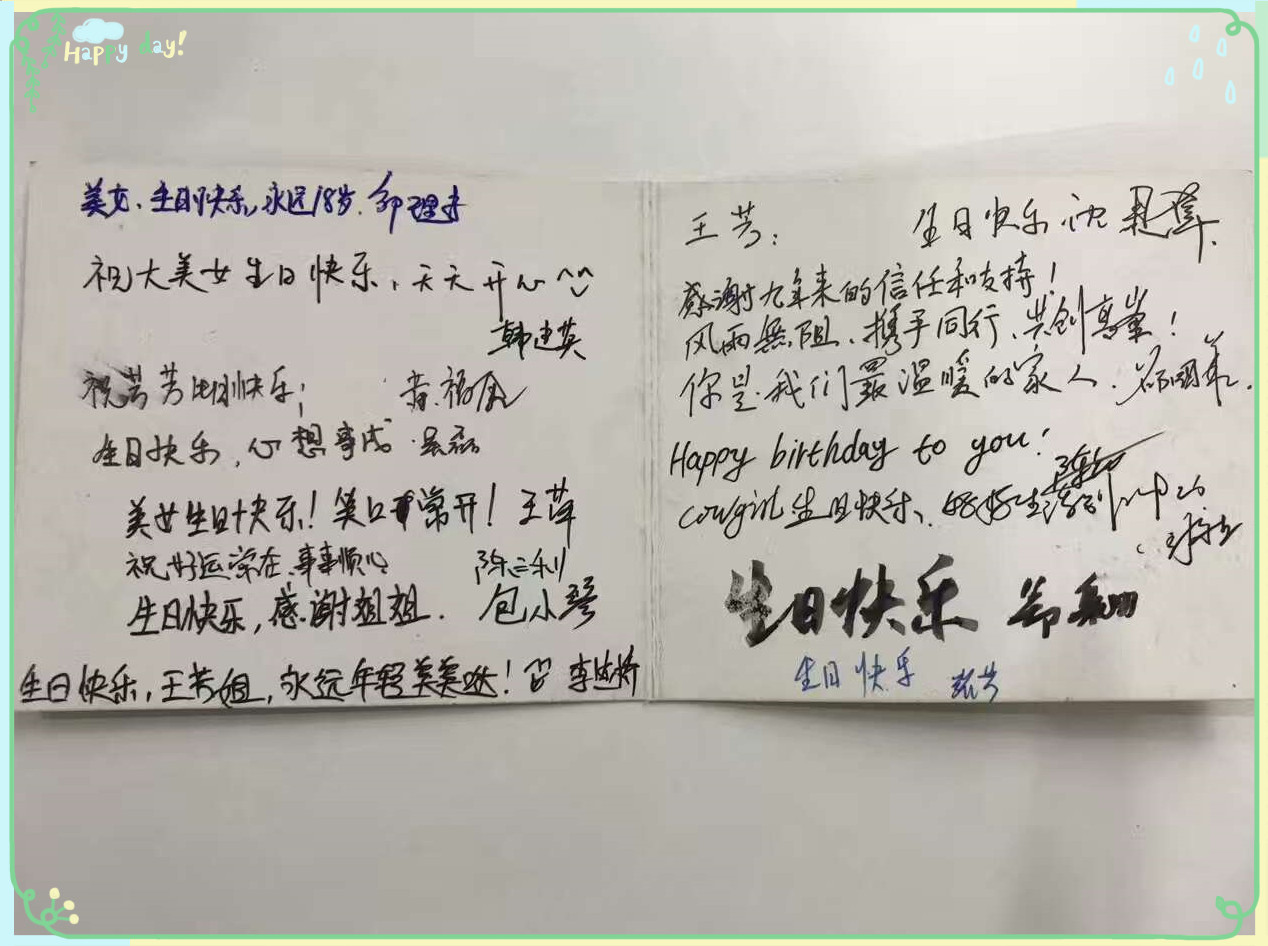 Happy day!
美女、生日快乐,永远18岁.
祝大美女生日快乐、天天开心^^
韩建英
祝芳芳生日快乐;
生日快乐,心想事成
美女生日快乐!笑口常开!王萍
祝好运常在、事事顺心 陈三利
生日快乐,感谢姐姐. 包小琴
生日快乐,王芳姐,永远年轻美美哒! 李
王芳: 生日快乐 沈
感谢九年来的信任和支持!
风雨無阻、携手同行、共创高峯!
你是我们最温暖的家人.
Happy birthday to you!
cowgirl 生日快乐、好好生活
生日快乐 郑
生日快乐